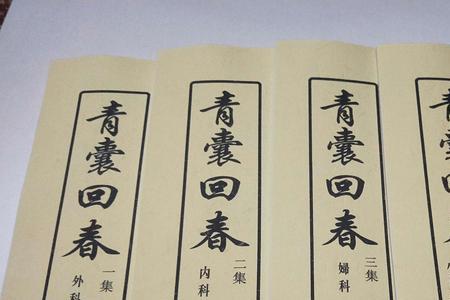 青囊回春
一集
外科
青囊回春
二集
內科
青囊回春
三集
婦科